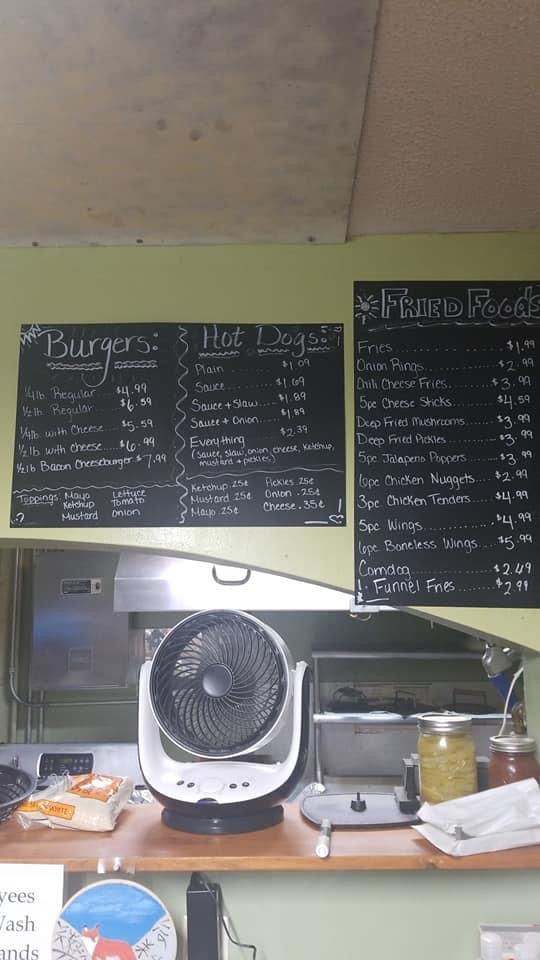 Burgers:
1/4 lb. Regular....$4.99
1/2 lb. Regular....$6.59
1/4 lb. with Cheese...$5.59
1/2 lb. with cheese...$6.99
1/2 lb Bacon Cheeseburger $7.99
Toppings: Mayo Lettuce
Ketchup Tomato
Mustard Onion
Hot Dogs:
Plain..........$1.09
Sauce..........$1.69
Sauce + Slaw....$1.89
Sauce + Onion....$1.89
Everything......$2.39
(sauce, slaw, onion, cheese, ketchup,
mustard + pickles)
Ketchup .25¢ Pickles .25¢
Mustard .25¢ Onion .25¢
Mayo .25¢ Cheese .35¢
FRIED FOODS
Fries..............$1.99
Onion Rings..........$2.99
Chili Cheese Fries.....$3.99
5pc Cheese Sticks.....$4.59
Deep Fried Mushrooms....$3.99
Deep Fried Pickles......$3.99
5pc Jalapeno Poppers....$3.99
6pc Chicken Nuggets....$2.99
3pc Chicken Tenders....$4.99
5pc Wings..........$4.99
6pc Boneless Wings....$5.99
Corndog............$2.49
Funnel Fries........$2.99
WHITE
yees
Wash
ands